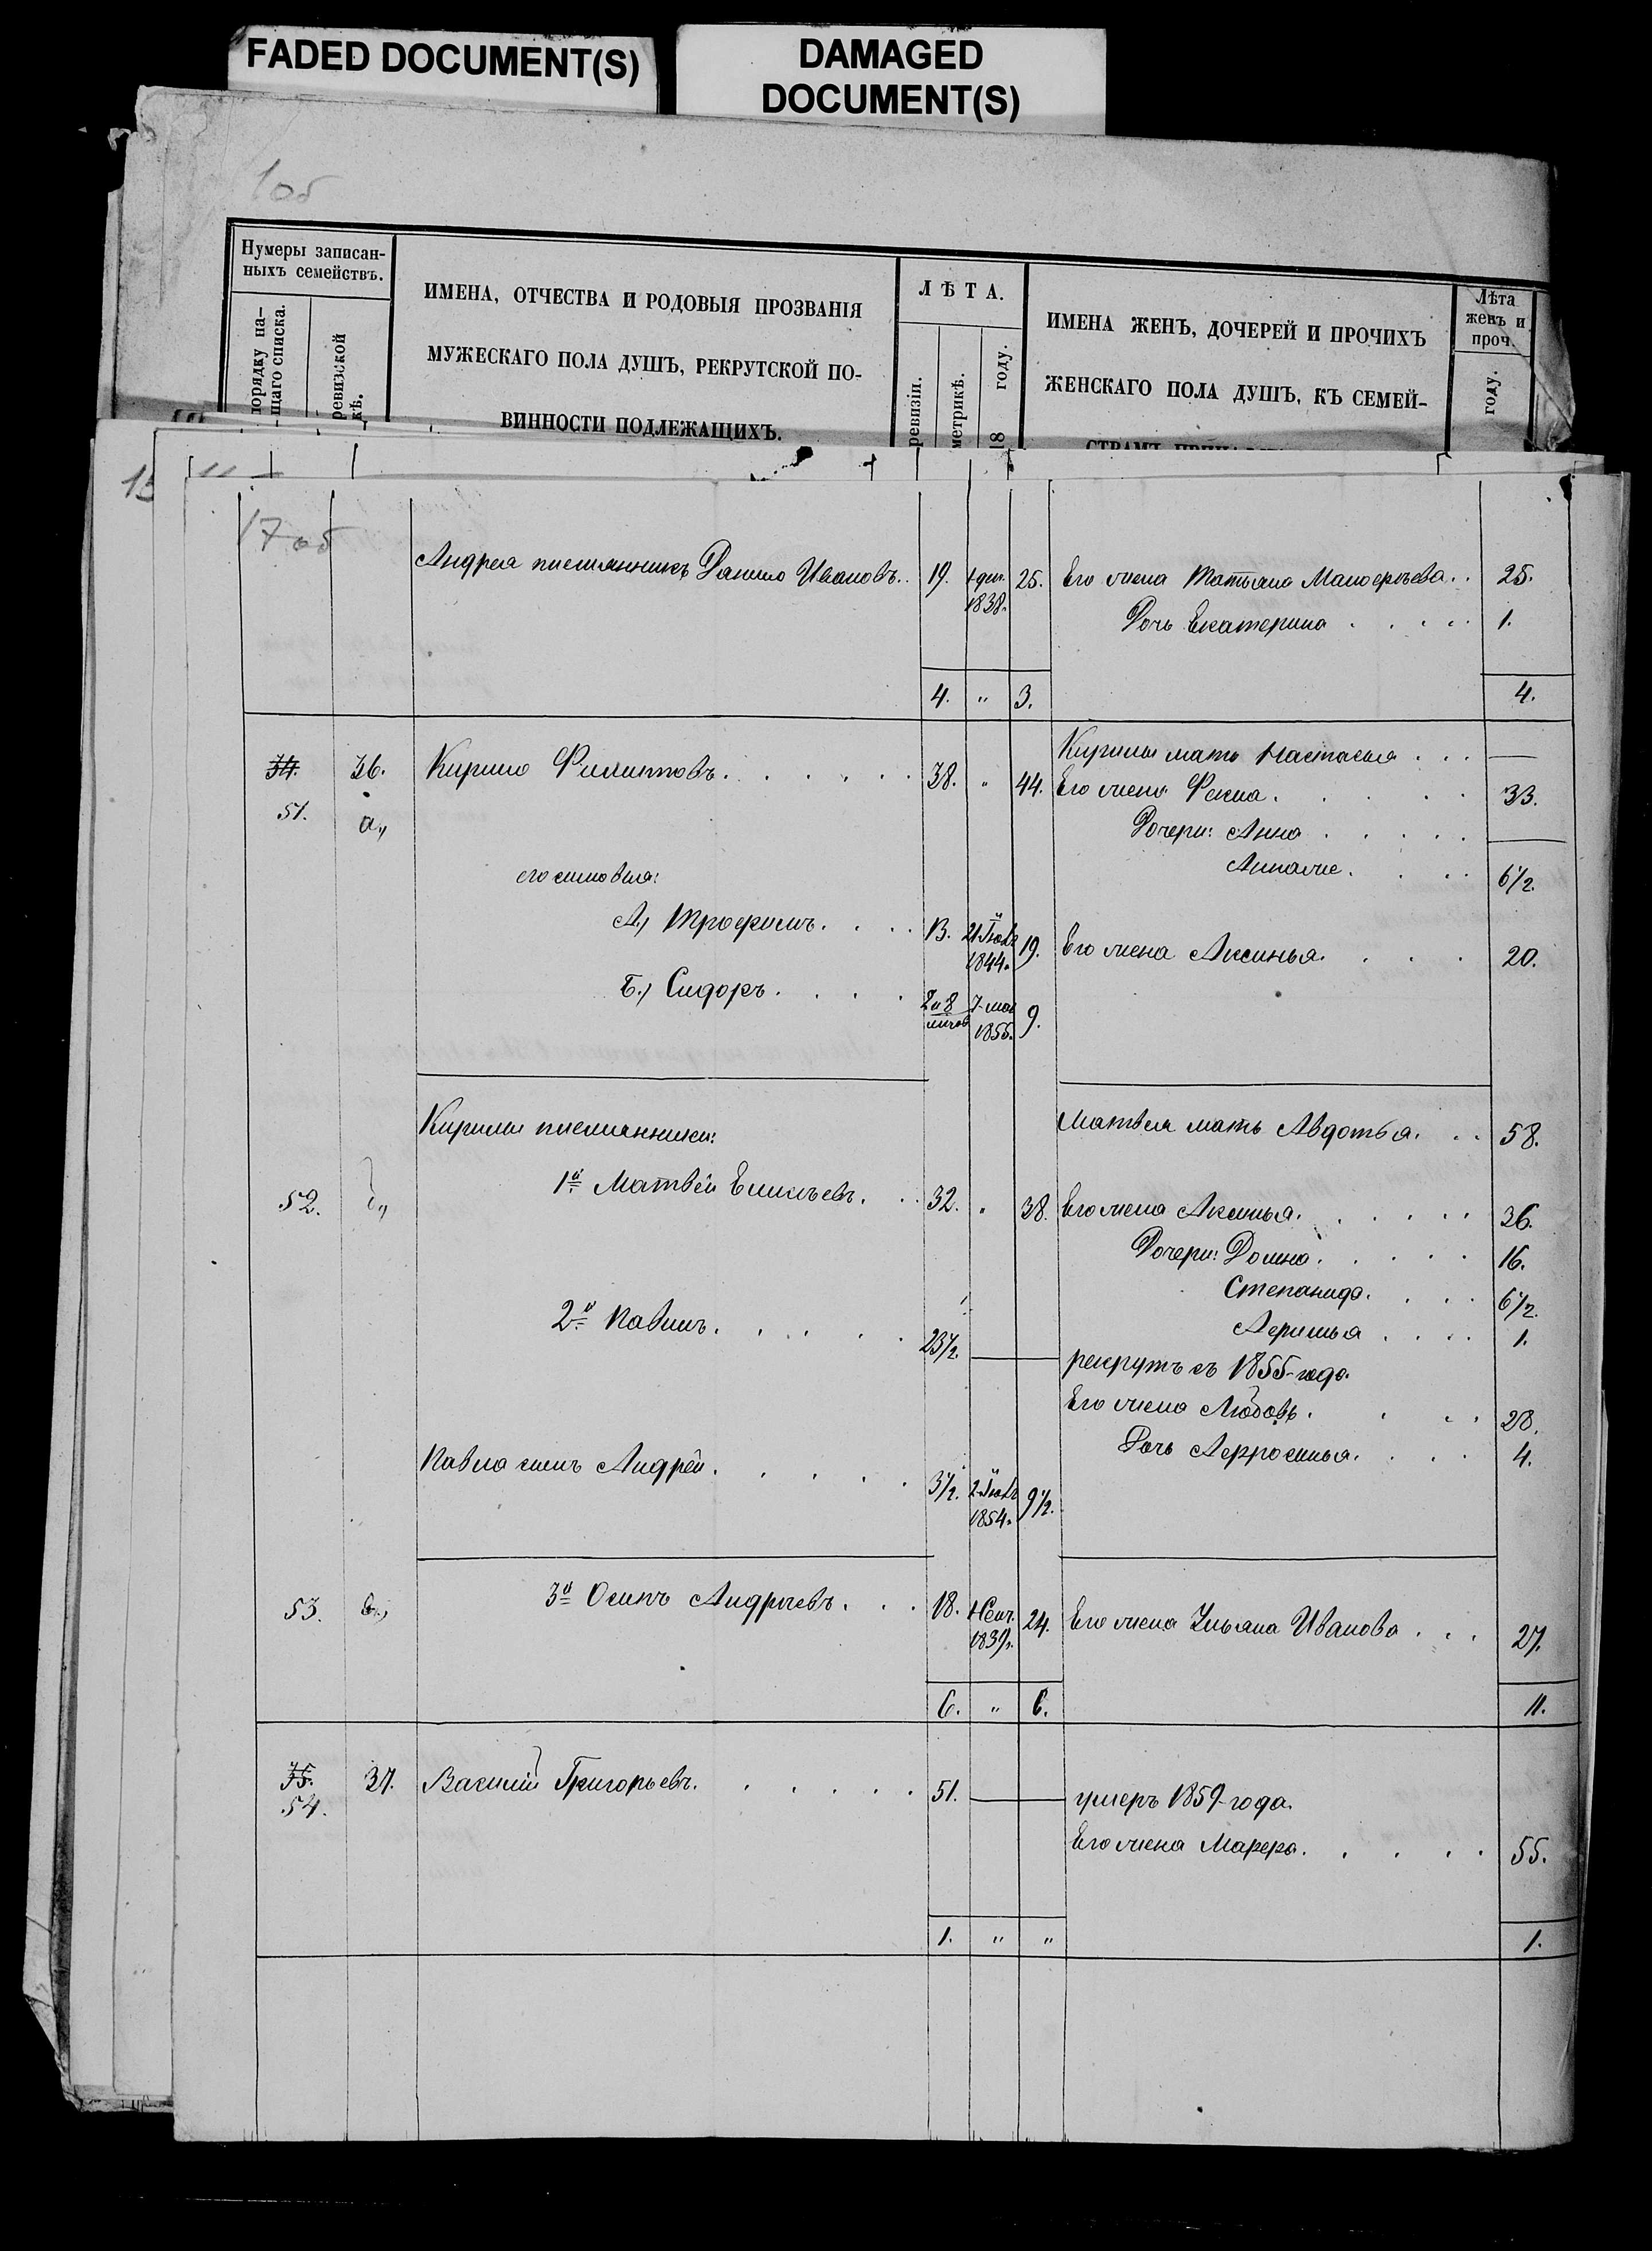 FADED DOCUMENT(S)
DAMAGED
DOCUMENT(S)
1об
Нумеры записан-
ныхъ семействъ.
порядку на-
щаго списка.
ревизской
кѣ.
ИМЕНА, ОТЧЕСТВА И РОДОВЫЯ ПРОЗВАНІЯ
МУЖЕСКАГО ПОЛА ДУШЪ, РЕКРУТСКОЙ ПО-
ВИННОСТИ ПОДЛЕЖАЩИХЪ.
ЛѢТА.
ревизіи.
метрикѣ.
18 году.
ИМЕНА ЖЕНЪ, ДОЧЕРЕЙ И ПРОЧИХЪ
ЖЕНСКАГО ПОЛА ДУШЪ, КЪ СЕМЕЙ-
Лѣта
женъ и
проч.
году.
15
17 об
Андрея племянникъ Данило Ивановъ. 19. 1838. 25. Его жена Татьяна Маноерьева. 25.
Дочь Екатерина 1.
4. " 3. 4.
Кирилы мать Настасья —
34. 36. Кирило Филиповъ. 38. " 44. Его жена Фекла. 33.
51. а., Дочери: Анна —
его сыновья: 6½.
А.) Трофимъ. 13. 21 Іюля 1844. 19. Его жена Аксинья. 20.
Б.) Сидоръ. 2 и 8 7 мая 1855. 9.
Кирилы племянники: Матвея мать Авдотья. 58.
52. 1й Матвей Емильевъ. 32. " 38. Его жена Аксинья. 36.
Дочери: Домна. 16.
Степанида. 6½.
1.
2й Павелъ. 23½. —
рекрутъ съ 1855 года.
Его жена Любовь. 28.
Дочь 4.
Павла сынъ Андрей. 3½. 1854. 9½.
53. в., 3й Осипъ Андреевъ. 18. 1839. 24. Его жена Ульяна Иванова 27.
6. " 6. 11.
35. 37. Василій Григорьевъ. 51. — умеръ 1859 года.
54.
Его жена Марфа. 55.
1. " " 1.